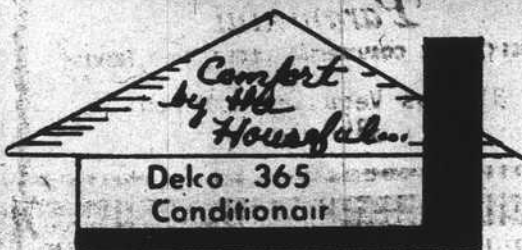 Comfort
by the
Houseful...
Delco 365
Conditionair